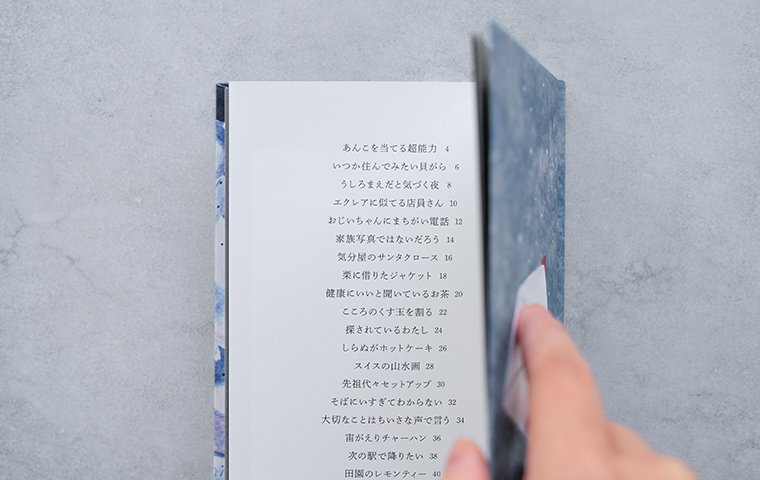 あんこを当てる超能力 4
いつか住んでみたい貝がら 6
うしろまえだと気づく夜 8
エクレアに似てる店員さん 10
おじいちゃんにまちがい電話 12
家族写真ではないだろう 14
気分屋のサンタクロース 16
栗に借りたジャケット 18
健康にいいと聞いているお茶 20
こころのくす玉を割る 22
探されているわたし 24
しらぬがホットケーキ 26
スイスの山水画 28
先祖代々セットアップ 30
そばにいすぎてわからない 32
大切なことはちいさな声で言う 34
宙がえりチャーハン 36
次の駅で降りたい 38
田園のレモンティー 40